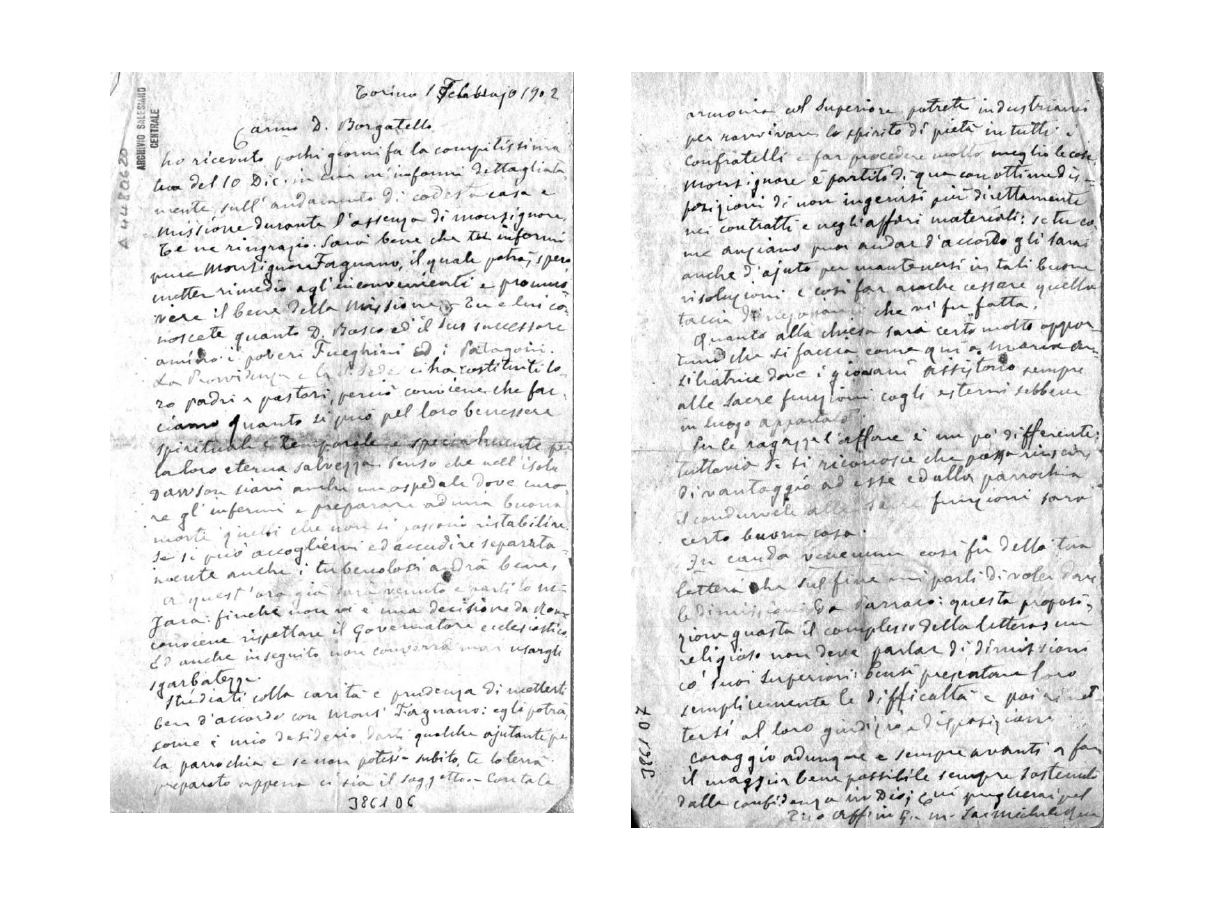 ARCHIVIO SALESIANO
CENTRALE
A4480620
Torino 1 Febbrajo 1902
Carmo D. Borgatello
ho ricevuto pochi giorni fa la compitissima
tua del 10 Dic. in cui m'informi dettagliata
mente sull'andamento di codesta casa e
missione durante l'assenza di monsignore
te ne ringrazio. Sarà bene che tu informi
pure Monsignore Fagnano, il quale potrà, spero
metter rimedio agl'inconvenienti e promuo-
vere il bene della Missione. Tu e lui co-
noscete quanto D. Bosco ed il suo successore
amino i poveri Fueghini ed i Patagoni.
La Provvidenza e la S. Sede ci ha costituiti lo-
ro padri e pastori, perciò conviene che fac-
ciamo quanto si può pel loro benessere
spirituale e temporale e specialmente per
la loro eterna salvezza. Penso che nell'isola
Dawson siavi anche un ospedale dove cura-
re gl'infermi e preparare ad una buona
morte quelli che non si possono ristabilire.
Se si può accogliervi ed accudire separata-
mente anche i tubercolosi andrà bene.
A quest'ora già sarà venuto e partito
finchè non vi è una decisione da Roma
conviene rispettare il Governatore ecclesiastico
Ed anche in seguito non converrà mai usargli
sgarbatezze.
Studiati colla carità e prudenza di metterti
ben d'accordo con Mons Fagnano: egli potrà
come è mio desiderio darti qualche ajutante per
la parrocchia e se non potesse subito, te lo terrà
preparato appena ci sia il soggetto. Con tale
386106
armonia col Superiore potrete industriarvi
per ravvivare lo spirito di pietà in tutti i
confratelli e far procedere molto meglio le cose.
Monsignore è partito di qua con ottime dis-
posizioni di non ingerirsi più direttamente
nei contratti e negli affari materiali; se tu co-
me anziano puoi andar d'accordo gli sarai
anche d'ajuto per mantenersi in tali buone
risoluzioni e così far anche cessare quella
taccia di che vi fu fatta.
Quanto alla chiesa sarà certo molto oppor-
tuno che si faccia come qui a Maria Au-
siliatrice dove i giovani assistono sempre
alle Sacre funzioni cogli esterni sebbene
in luogo appartato.
Per le ragazze l'affare è un po' differente;
tuttavia se si riconosce che possa riuscire
di vantaggio ad esse ed alla parrocchia
il condurvele alle Sacre funzioni sarà
certo buona cosa.
In cauda venenum così fu della tua
lettera che sul fine mi parli di voler dare
le dimissioni da Parroco: questa proposi-
zione guasta il complesso della lettera; un
religioso non deve parlar di dimissioni
co' suoi superiori: bensì presentare loro
semplicemente le difficoltà e poi rimet-
tersi al loro giudizio e disposizione
Coraggio adunque e sempre avanti a fare
il maggior bene possibile sempre sostenuti
dalla confidenza in Dio; Cui pregherai pel
Tuo Aff in G. M. Sac Michele Rua
386107